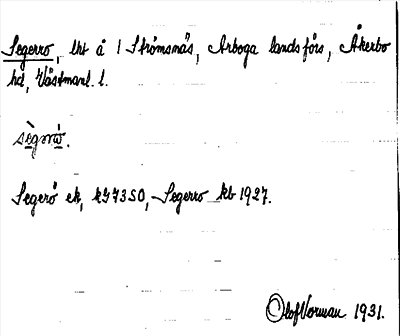 Segerro, lht å 1 Strömsnäs, Arboga landsförs, Åkerbo
hd, Västmanl. l.
Segerö ek, Segerro kb 1927.
Olof Norman 1931.